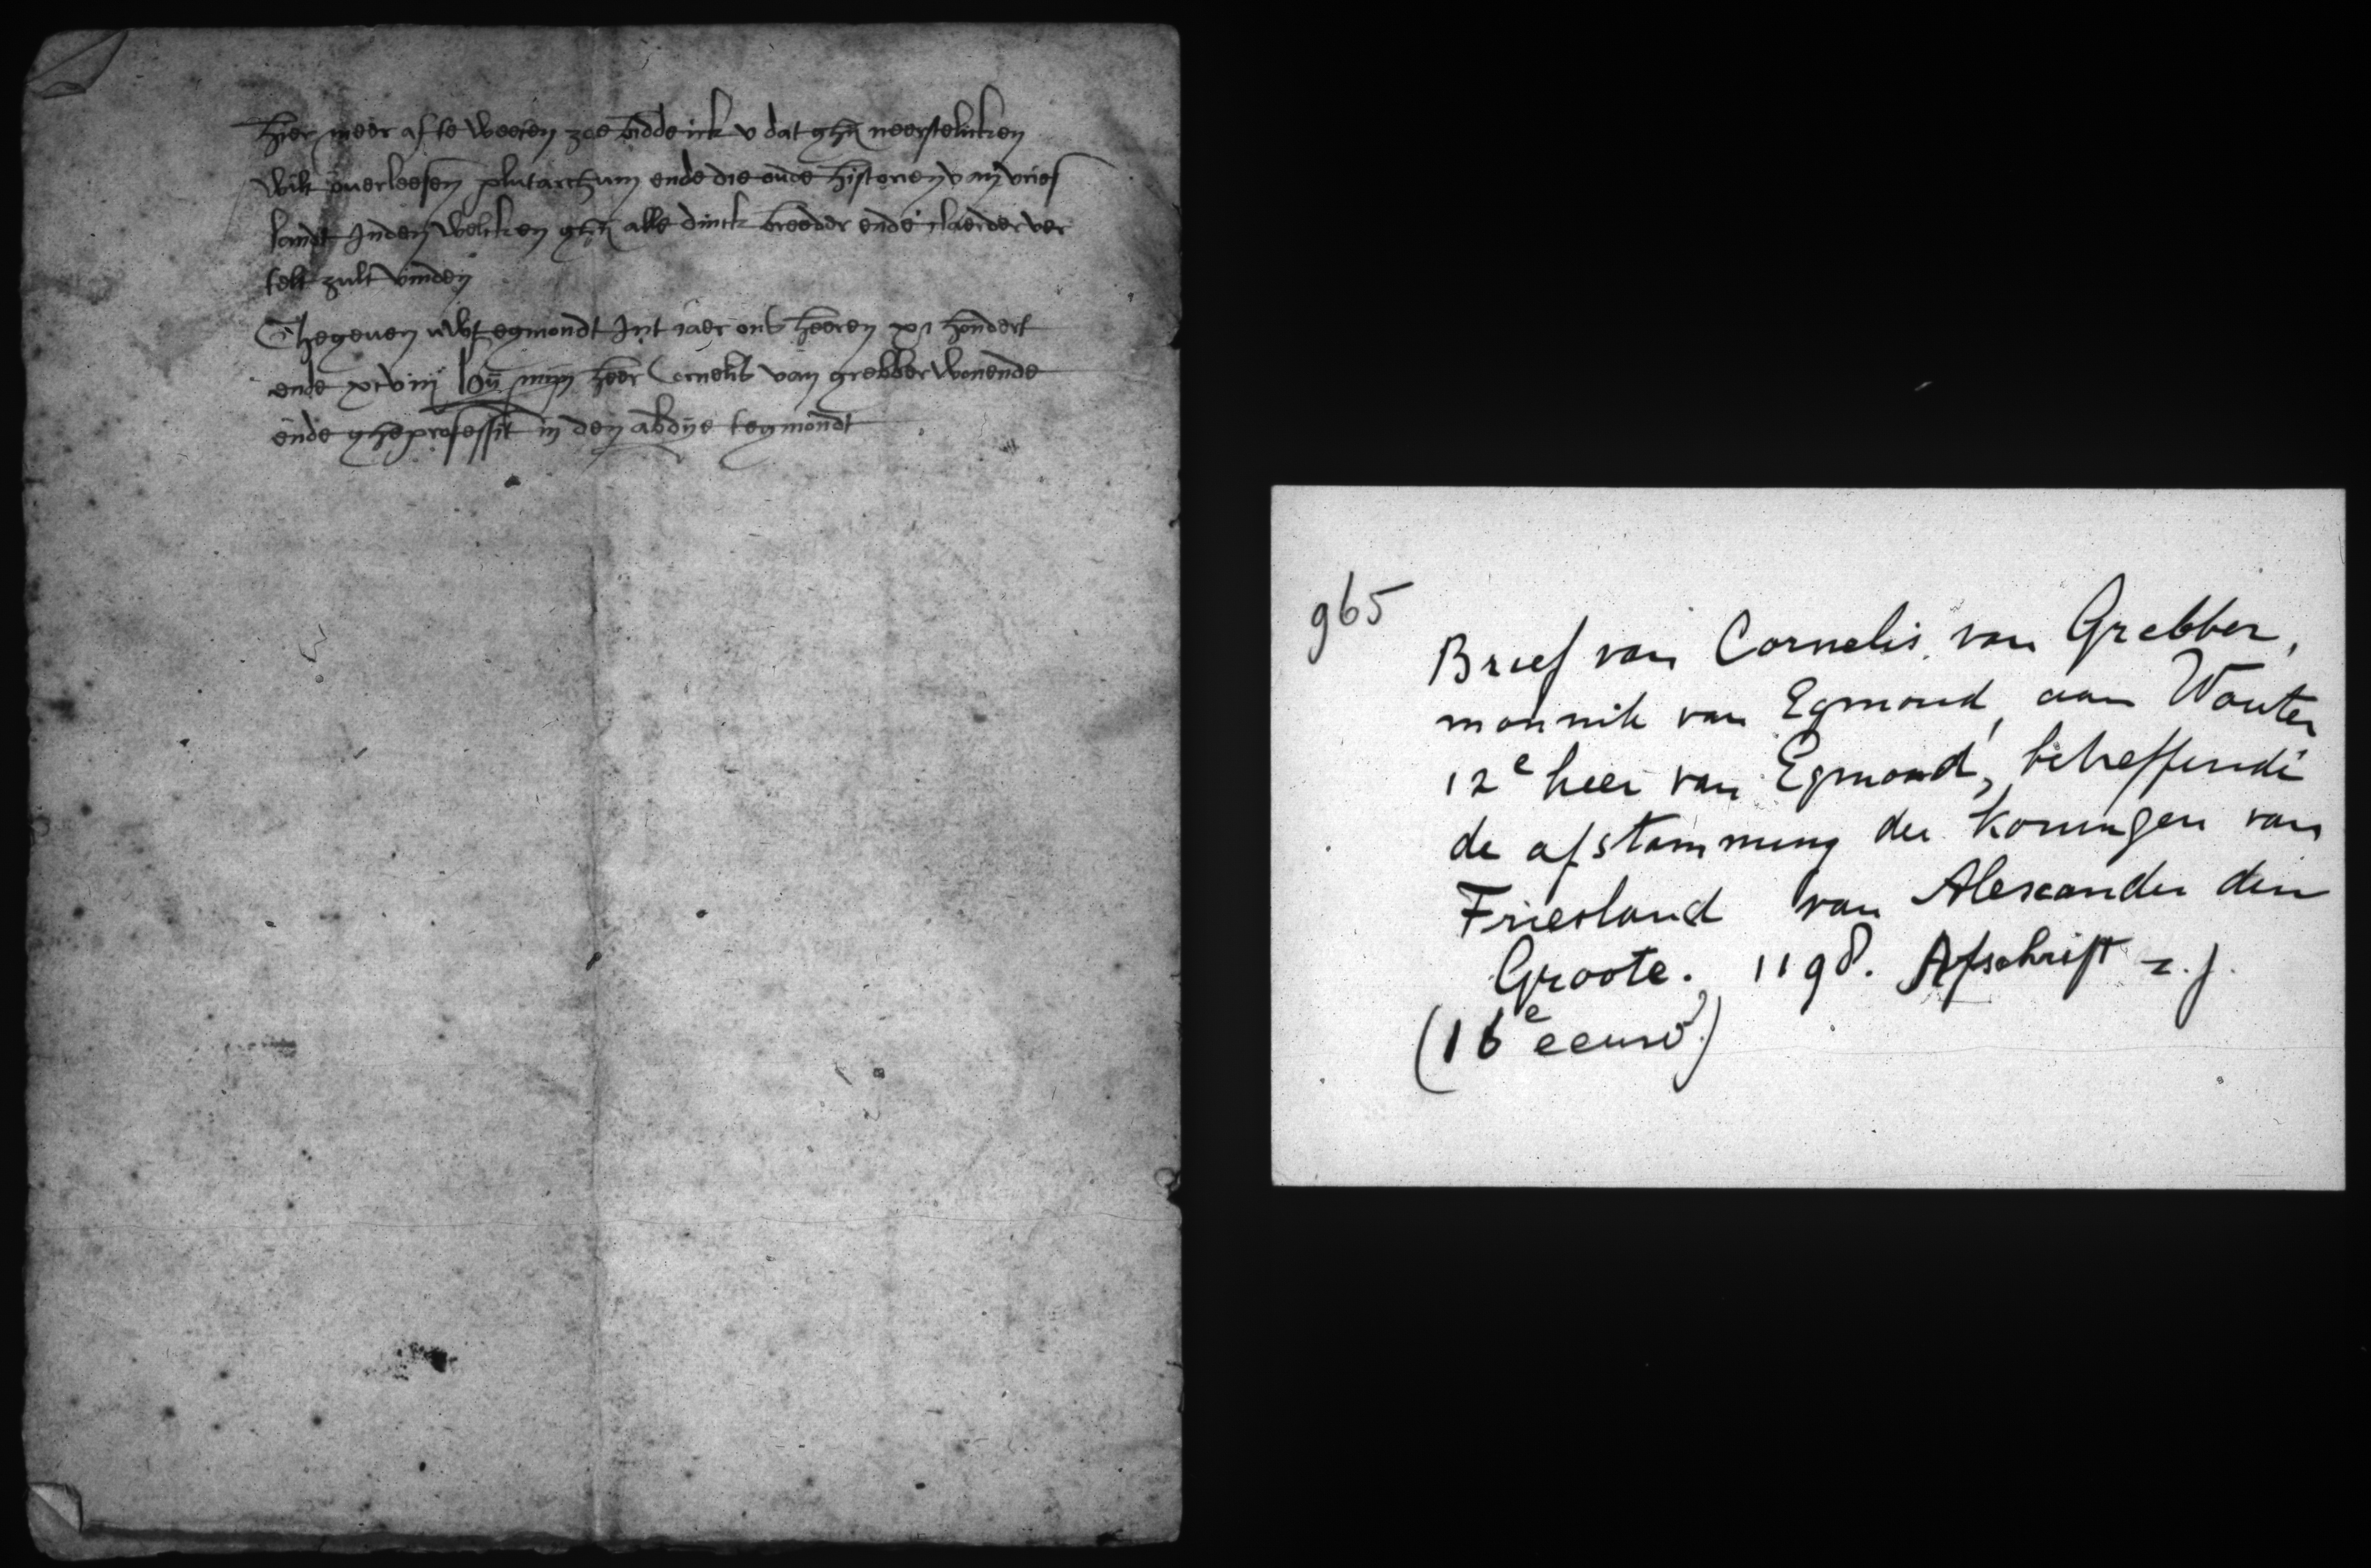 hier meer af te weeten zoe bidde ick v dat ghij neerstelicken
wilt ouerleesen plutarchum ende die oude historien van vries
landt Inden welcken ghij alle dinck breeder ende claerder ver
telt zult vinden
Ghegeuen wt egmondt Int iaer ons heeren xi hondert
ende xcviij bij mijn heer Cornelis van grebber wonende
ende gheprofessit in den abdije tegmondt
965
Brief van Cornelis van Grebber,
monnik van Egmond, aan Wouter
12e heer van Egmond, betreffende
de afstamming der Koningen van
Friesland van Alexander den
Groote. 1198. Afschrift z.j.
(16e eeuw)